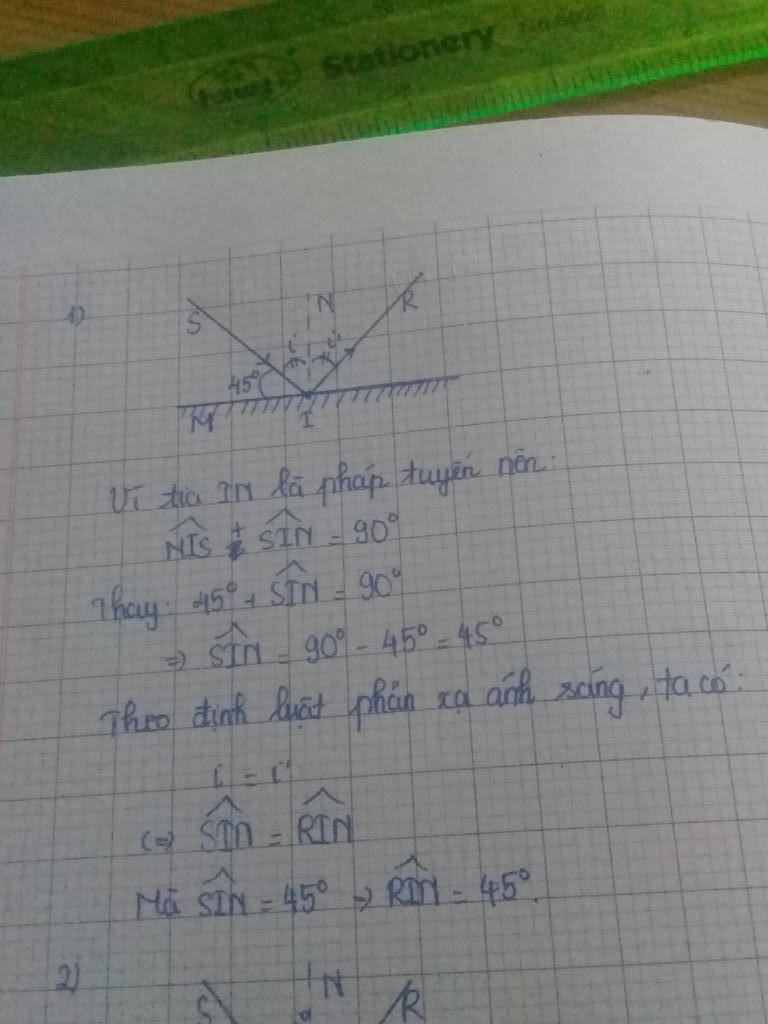 Stationery
1)
S
N
R
i
i'
45°
M
I
Vì tia IN là pháp tuyến nên:
MIS + SIN = 90°
Thay: 45° + SIN = 90°
⇒ SIN = 90° - 45° = 45°
Theo định luật phản xạ ánh sáng, ta có:
i = i'
(=) SIN = RIN
Mà SIN = 45° ⇒ RIN = 45°.
2)
S
N
R